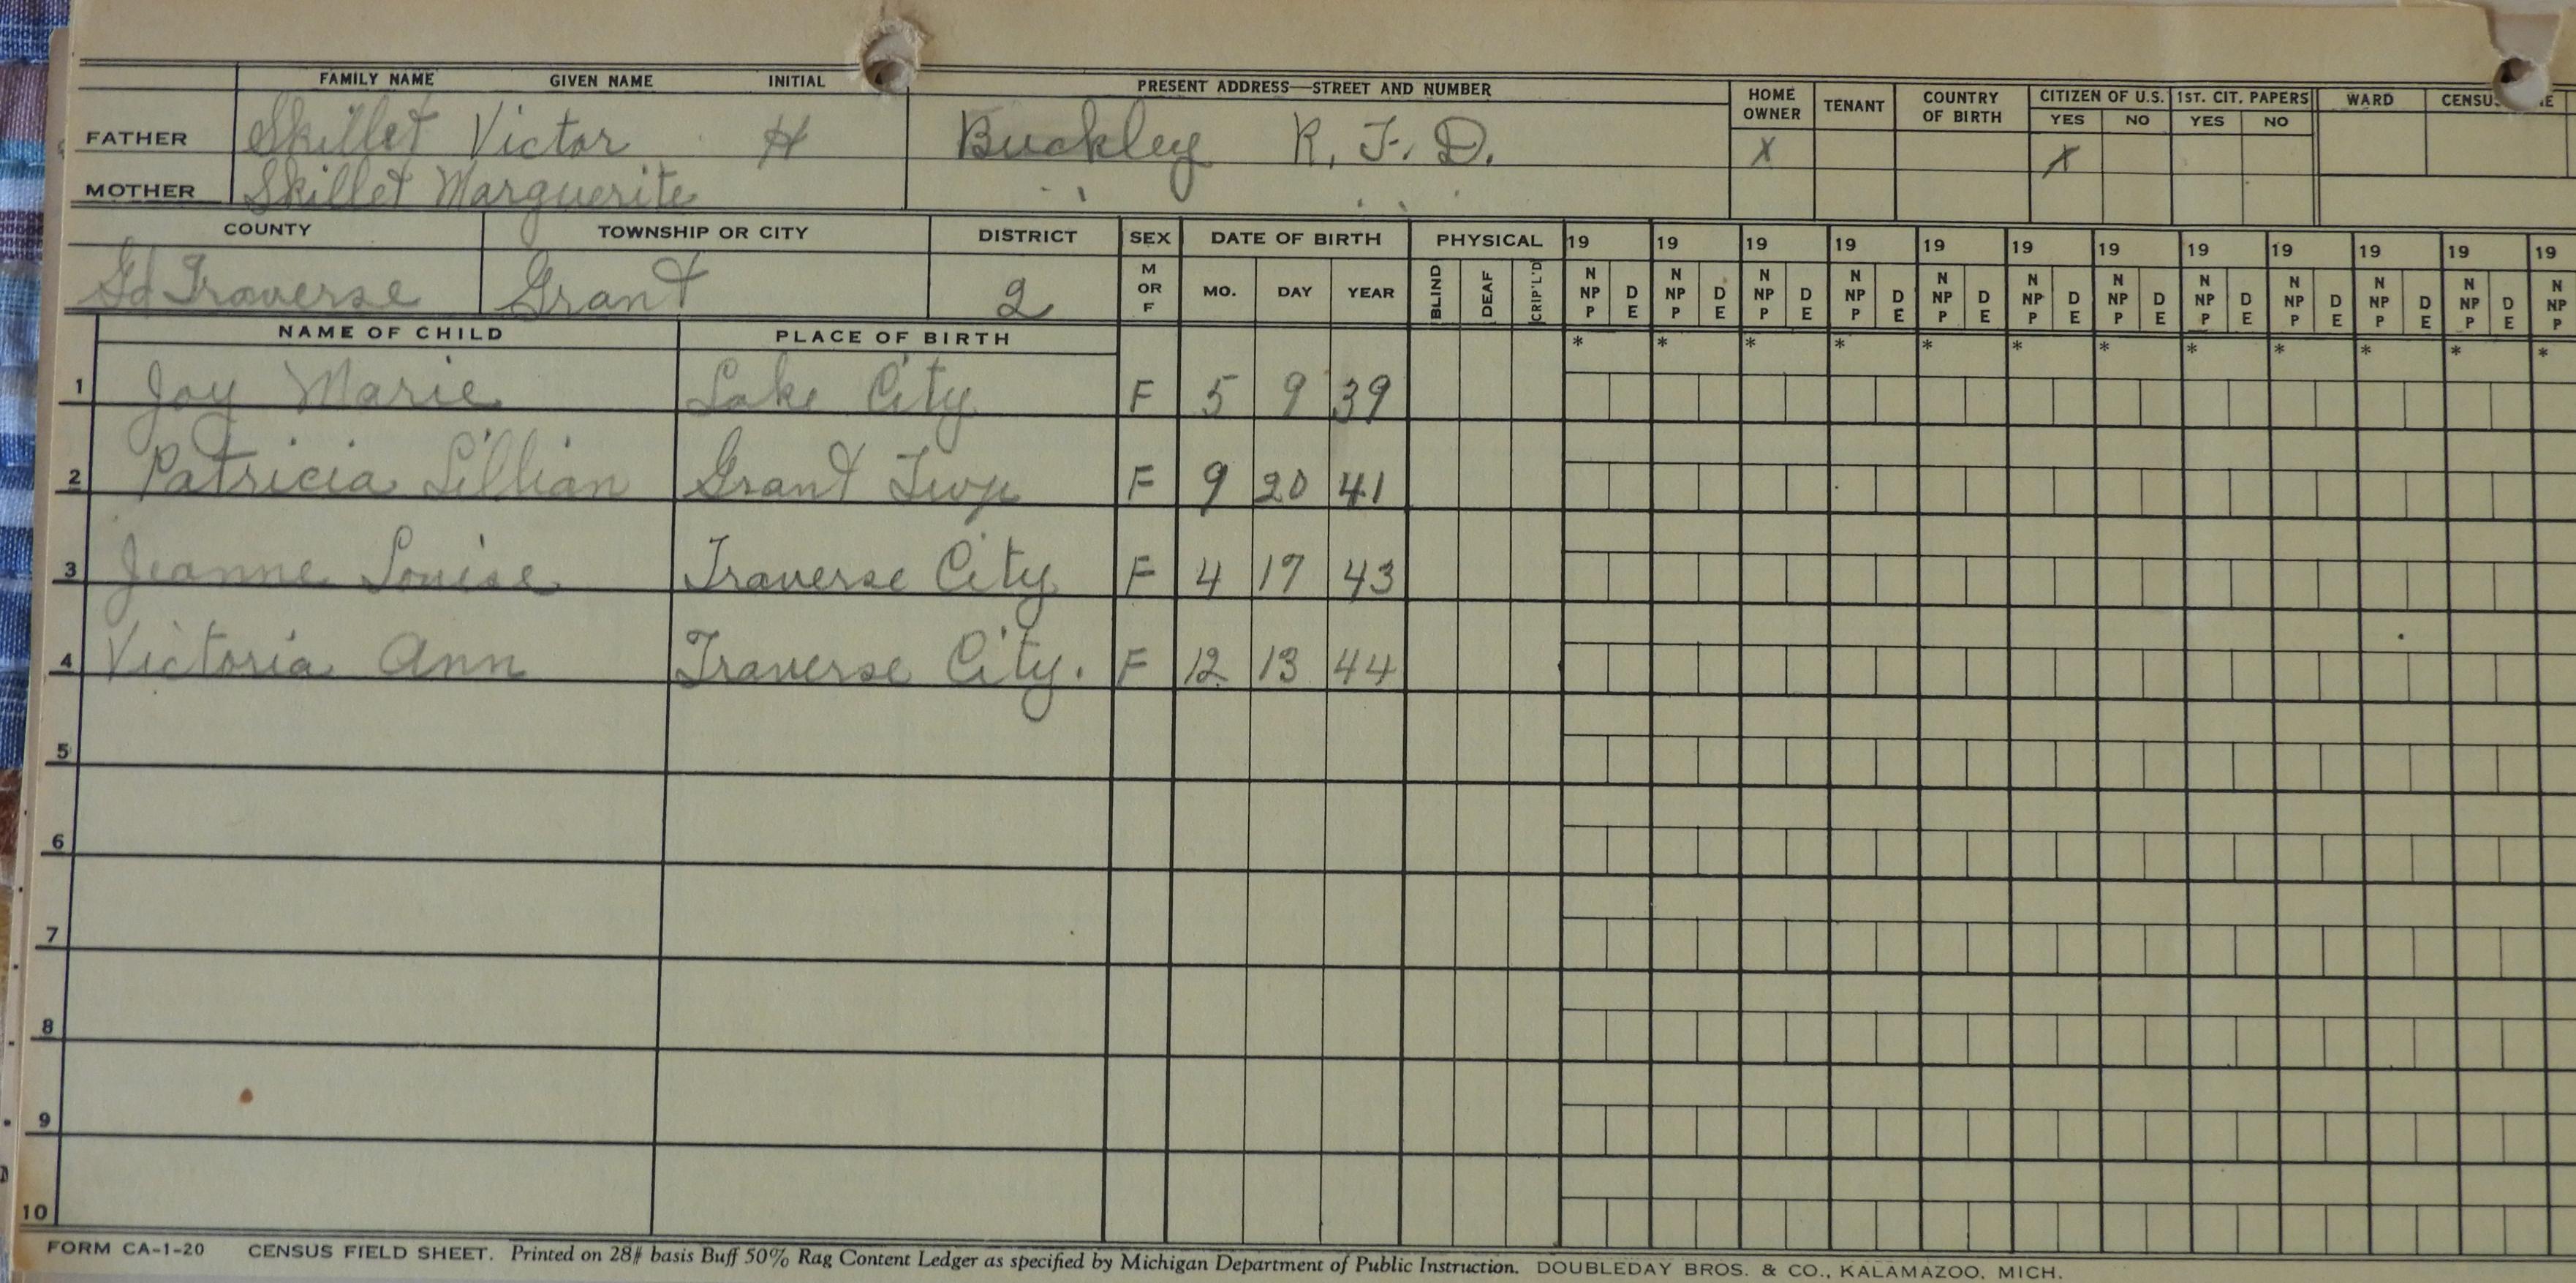 FAMILY NAME GIVEN NAME INITIAL PRESENT ADDRESS—STREET AND NUMBER HOME OWNER TENANT COUNTRY OF BIRTH CITIZEN OF U.S. 1ST. CIT. PAPERS WARD
YES NO YES NO
FATHER Skillet Victor H Buckley R. F. D. X X
MOTHER Skillet Marguerite " "
COUNTY TOWNSHIP OR CITY DISTRICT SEX DATE OF BIRTH PHYSICAL 19 19 19 19 19 19 19 19 19 19 19 19
Gd Traverse Grant 2 M OR F MO. DAY YEAR BLIND DEAF CRIP'L'D N NP P D E N NP P D E N NP P D E N NP P D E N NP P D E N NP P D E N NP P D E N NP P D E N NP P D E N NP P D E N NP P D E N NP P
NAME OF CHILD PLACE OF BIRTH * * * * * * * * * * * *
1 Joy Marie Lake City F 5 9 39
2 Patricia Lillian Grant Twp F 9 20 41
3 Jeanne Louise Traverse City F 4 17 43
4 Victoria Ann Traverse City. F 12 13 44
5
6
7
8
9
10
FORM CA-1-20 CENSUS FIELD SHEET. Printed on 28# basis Buff 50% Rag Content Ledger as specified by Michigan Department of Public Instruction. DOUBLEDAY BROS. & CO., KALAMAZOO, MICH.